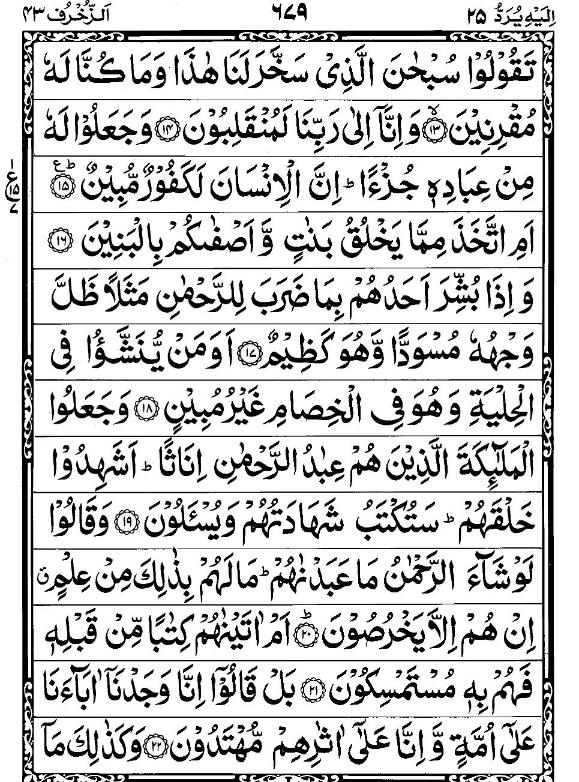 اِلَيْهِ يُرَدُّ ٢٥ ٦٧٩ اَلزُّخْرُف ٤٣
تَقُوْلُوْا سُبْحٰنَ الَّذِىْ سَخَّرَ لَنَا هٰذَا وَمَا كُنَّا لَهٗ
مُقْرِنِيْنَ ۙ﴿١٣﴾ وَاِنَّاۤ اِلٰى رَبِّنَا لَمُنْقَلِبُوْنَ ﴿١٤﴾ وَجَعَلُوْا لَهٗ
مِنْ عِبَادِهٖ جُزْءًا ؕ اِنَّ الْاِنْسَانَ لَكَفُوْرٌ مُّبِيْنٌ ؕ﴿١٥﴾ ع
١ ع ١٥ ٧
اَمِ اتَّخَذَ مِمَّا يَخْلُقُ بَنٰتٍ وَّاَصْفٰىكُمْ بِالْبَنِيْنَ ﴿١٦﴾
وَاِذَا بُشِّرَ اَحَدُهُمْ بِمَا ضَرَبَ لِلرَّحْمٰنِ مَثَلًا ظَلَّ
وَجْهُهٗ مُسْوَدًّا وَّهُوَ كَظِيْمٌ ﴿١٧﴾ اَوَمَنْ يُّنَشَّؤُا فِى
الْحِلْيَةِ وَهُوَ فِى الْخِصَامِ غَيْرُ مُبِيْنٍ ﴿١٨﴾ وَجَعَلُوا
الْمَلٰٓئِكَةَ الَّذِيْنَ هُمْ عِبٰدُ الرَّحْمٰنِ اِنَاثًا ؕ اَشَهِدُوْا
خَلْقَهُمْ ؕ سَتُكْتَبُ شَهَادَتُهُمْ وَيُسْئَلُوْنَ ﴿١٩﴾ وَقَالُوْا
لَوْ شَآءَ الرَّحْمٰنُ مَا عَبَدْنٰهُمْ ؕ مَا لَهُمْ بِذٰلِكَ مِنْ عِلْمٍ ۗ
اِنْ هُمْ اِلَّا يَخْرُصُوْنَ ؕ﴿٢٠﴾ اَمْ اٰتَيْنٰهُمْ كِتٰبًا مِّنْ قَبْلِهٖ
فَهُمْ بِهٖ مُسْتَمْسِكُوْنَ ﴿٢١﴾ بَلْ قَالُوْۤا اِنَّا وَجَدْنَاۤ اٰبَآءَنَا
عَلٰٓى اُمَّةٍ وَّاِنَّا عَلٰٓى اٰثٰرِهِمْ مُّهْتَدُوْنَ ﴿٢٢﴾ وَكَذٰلِكَ مَاۤ